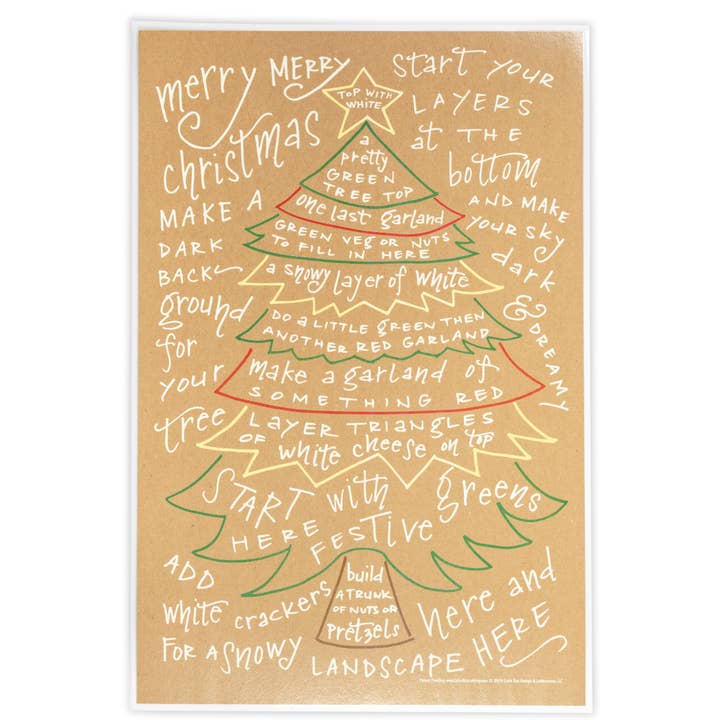 merry MERRY
christmas
MAKE A
DARK
BACK
ground
for
your
tree
start YOUR
LAYERS
at THE
bottom
AND MAKE
YOUR SKY
dark
& DREAMY
TOP WITH
WHITE
a
pretty
GREEN
TREE TOP
one last garland
GREEN VEG OR NUTS
TO FILL IN HERE
a snowy layer of white
DO a LITTLE green THEN
ANOTHER RED GARLAND
make a garland of
SOMETHING RED
LAYER TRIANGLES
OF white cheese on top
START with greens
HERE FESTIVE
build
A TRUNK
OF NUTS OR
pretzels
ADD
white crackers
FOR A SNOWY
LANDSCAPE
here and
HERE